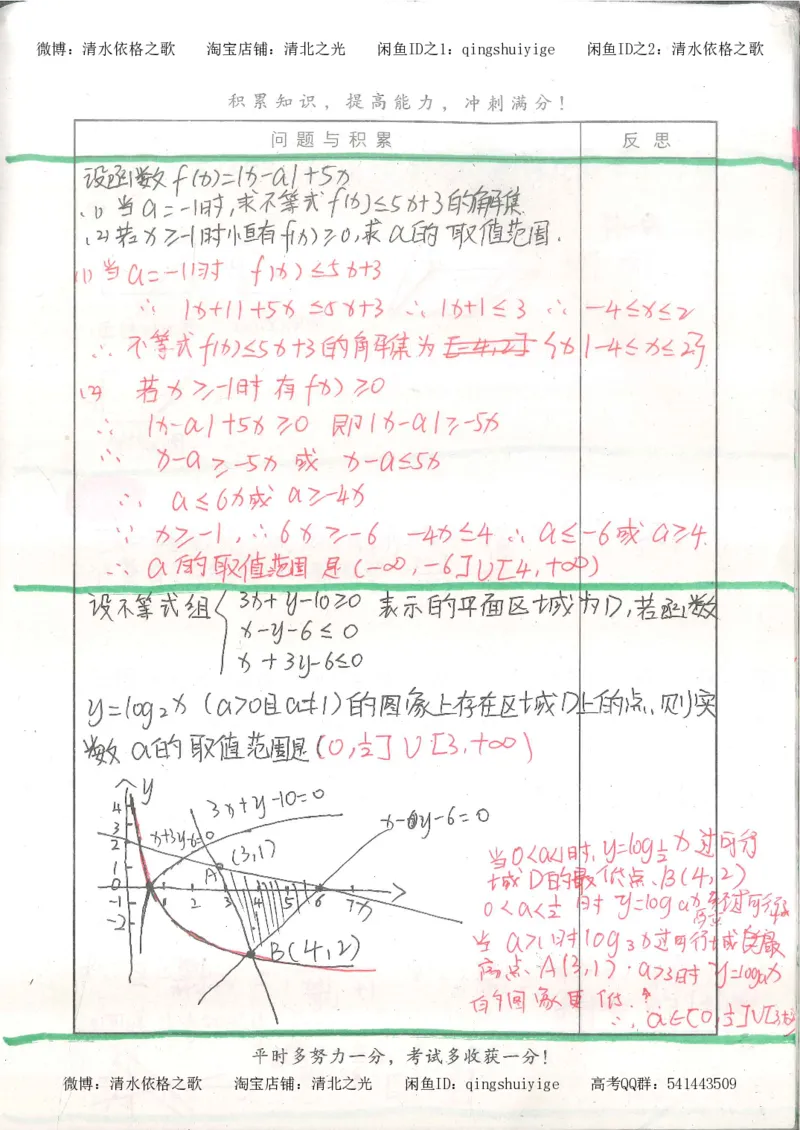 微博：清水依格之歌 淘宝店铺：清北之光 闲鱼ID之1：qingshuiyige 闲鱼ID之2：清水依格之歌
积累知识，提高能力，冲刺满分！
问题与积累 反思
设函数f(x)=|x-a|+5x
(1) 当a=-1时,求不等式f(x)≤5x+3的解集
(2) 若x≥-1时恒有f(x)≥0,求a的取值范围.
(1) 当a=-1时 f(x)≤5x+3
∴ |x+1|+5x≤5x+3 ∴ |x+1≤3 ∴ -4≤x≤2
∴ 不等式f(x)≤5x+3的解集为 [-4,2] {x|-4≤x≤2}
(2) 若x≥-1时有f(x)≥0
∴ |x-a|+5x≥0 即|x-a|≥-5x
∴ x-a≥-5x 或 x-a≤5x
∴ a≤6x或a≥-4x
∵ x≥-1, ∴ 6x≥-6 -4x≤4 ∴ a≤-6或a≥4.
∴ a的取值范围是(-∞,-6]∪[4,+∞)
设不等式组{ 3x+y-10≥0 表示的平面区域为D,若函数
x-y-6≤0
x+3y-6≤0
y=log₂x (a>0且a≠1)的图象上存在区域D上的点,则实
数a的取值范围是(0,½]∪[3,+∞)
y
4
3
2
1
0
-1
-2
3x+y-10=0
x+3y-6=0
x-y-6=0
A (3,1)
1 2 3 4 5 6 7 x
B(4,2)
当0<a<1时,y=log½x过可行
域D的最低点、B(4,2)
0<a<½时 y=logax经过可行域
当a>1时log₃x过可行域最
高点A(3,1)·a>3时y=logax
的图象更低.
∴ a∈(0,½]∪[3,+∞
平时多努力一分，考试多收获一分！
微博：清水依格之歌 淘宝店铺：清北之光 闲鱼ID：qingshuiyige 高考QQ群：541443509